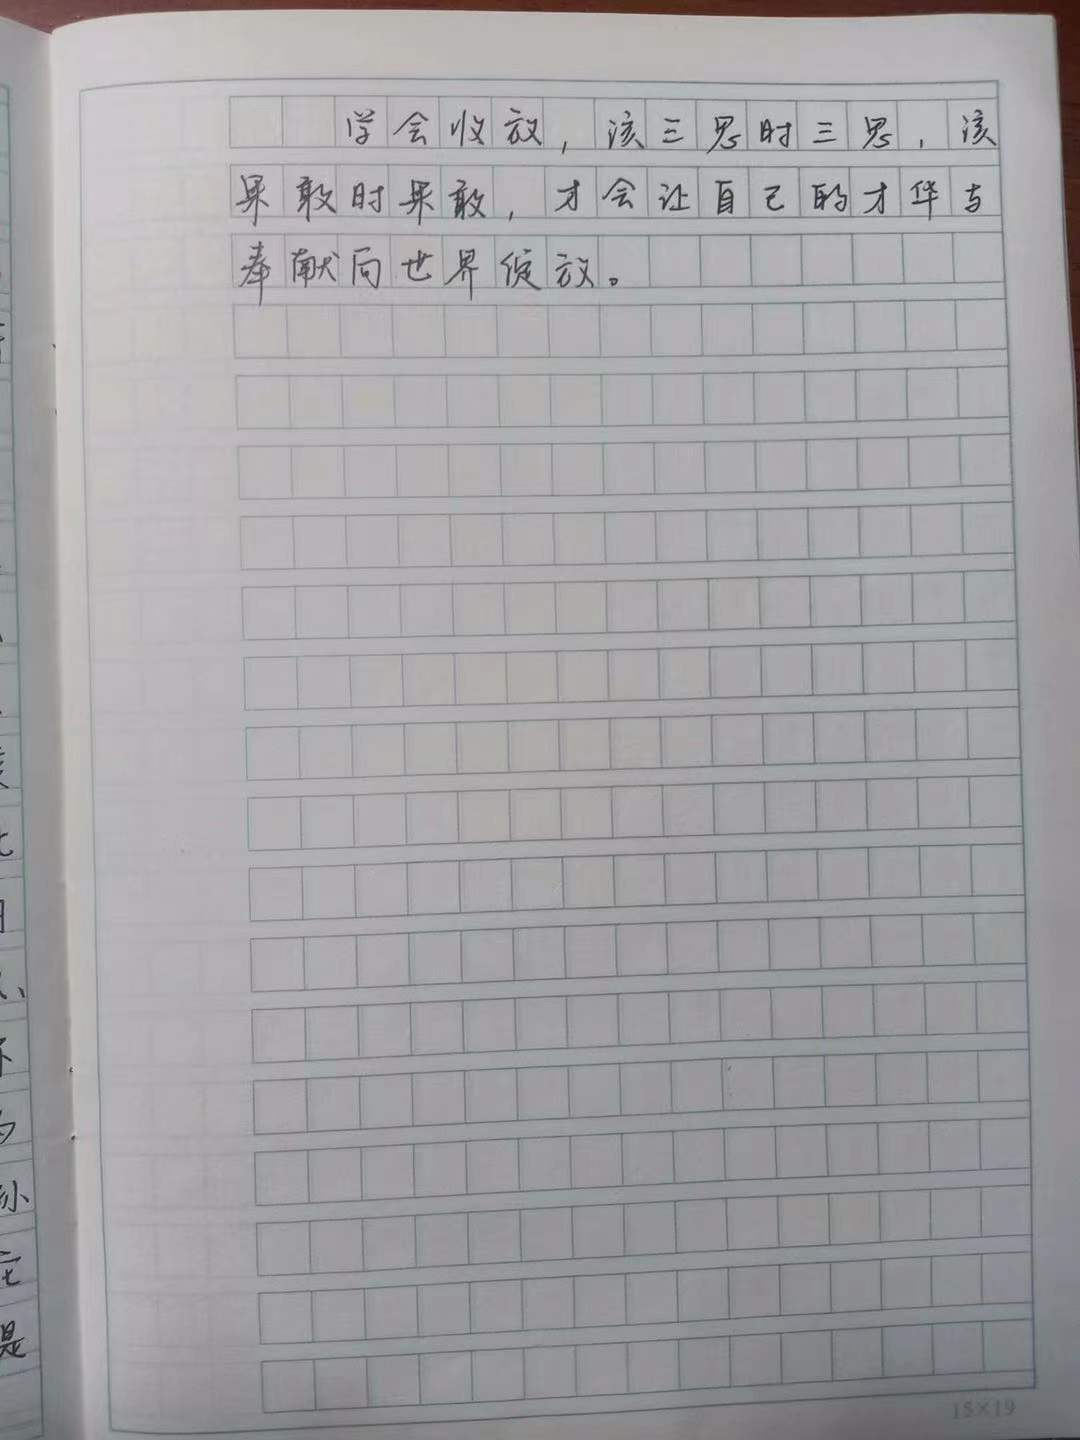 学会收放，该三思时三思，该
果敢时果敢，才会让自己的才华与
奉献向世界绽放。
是
15×19